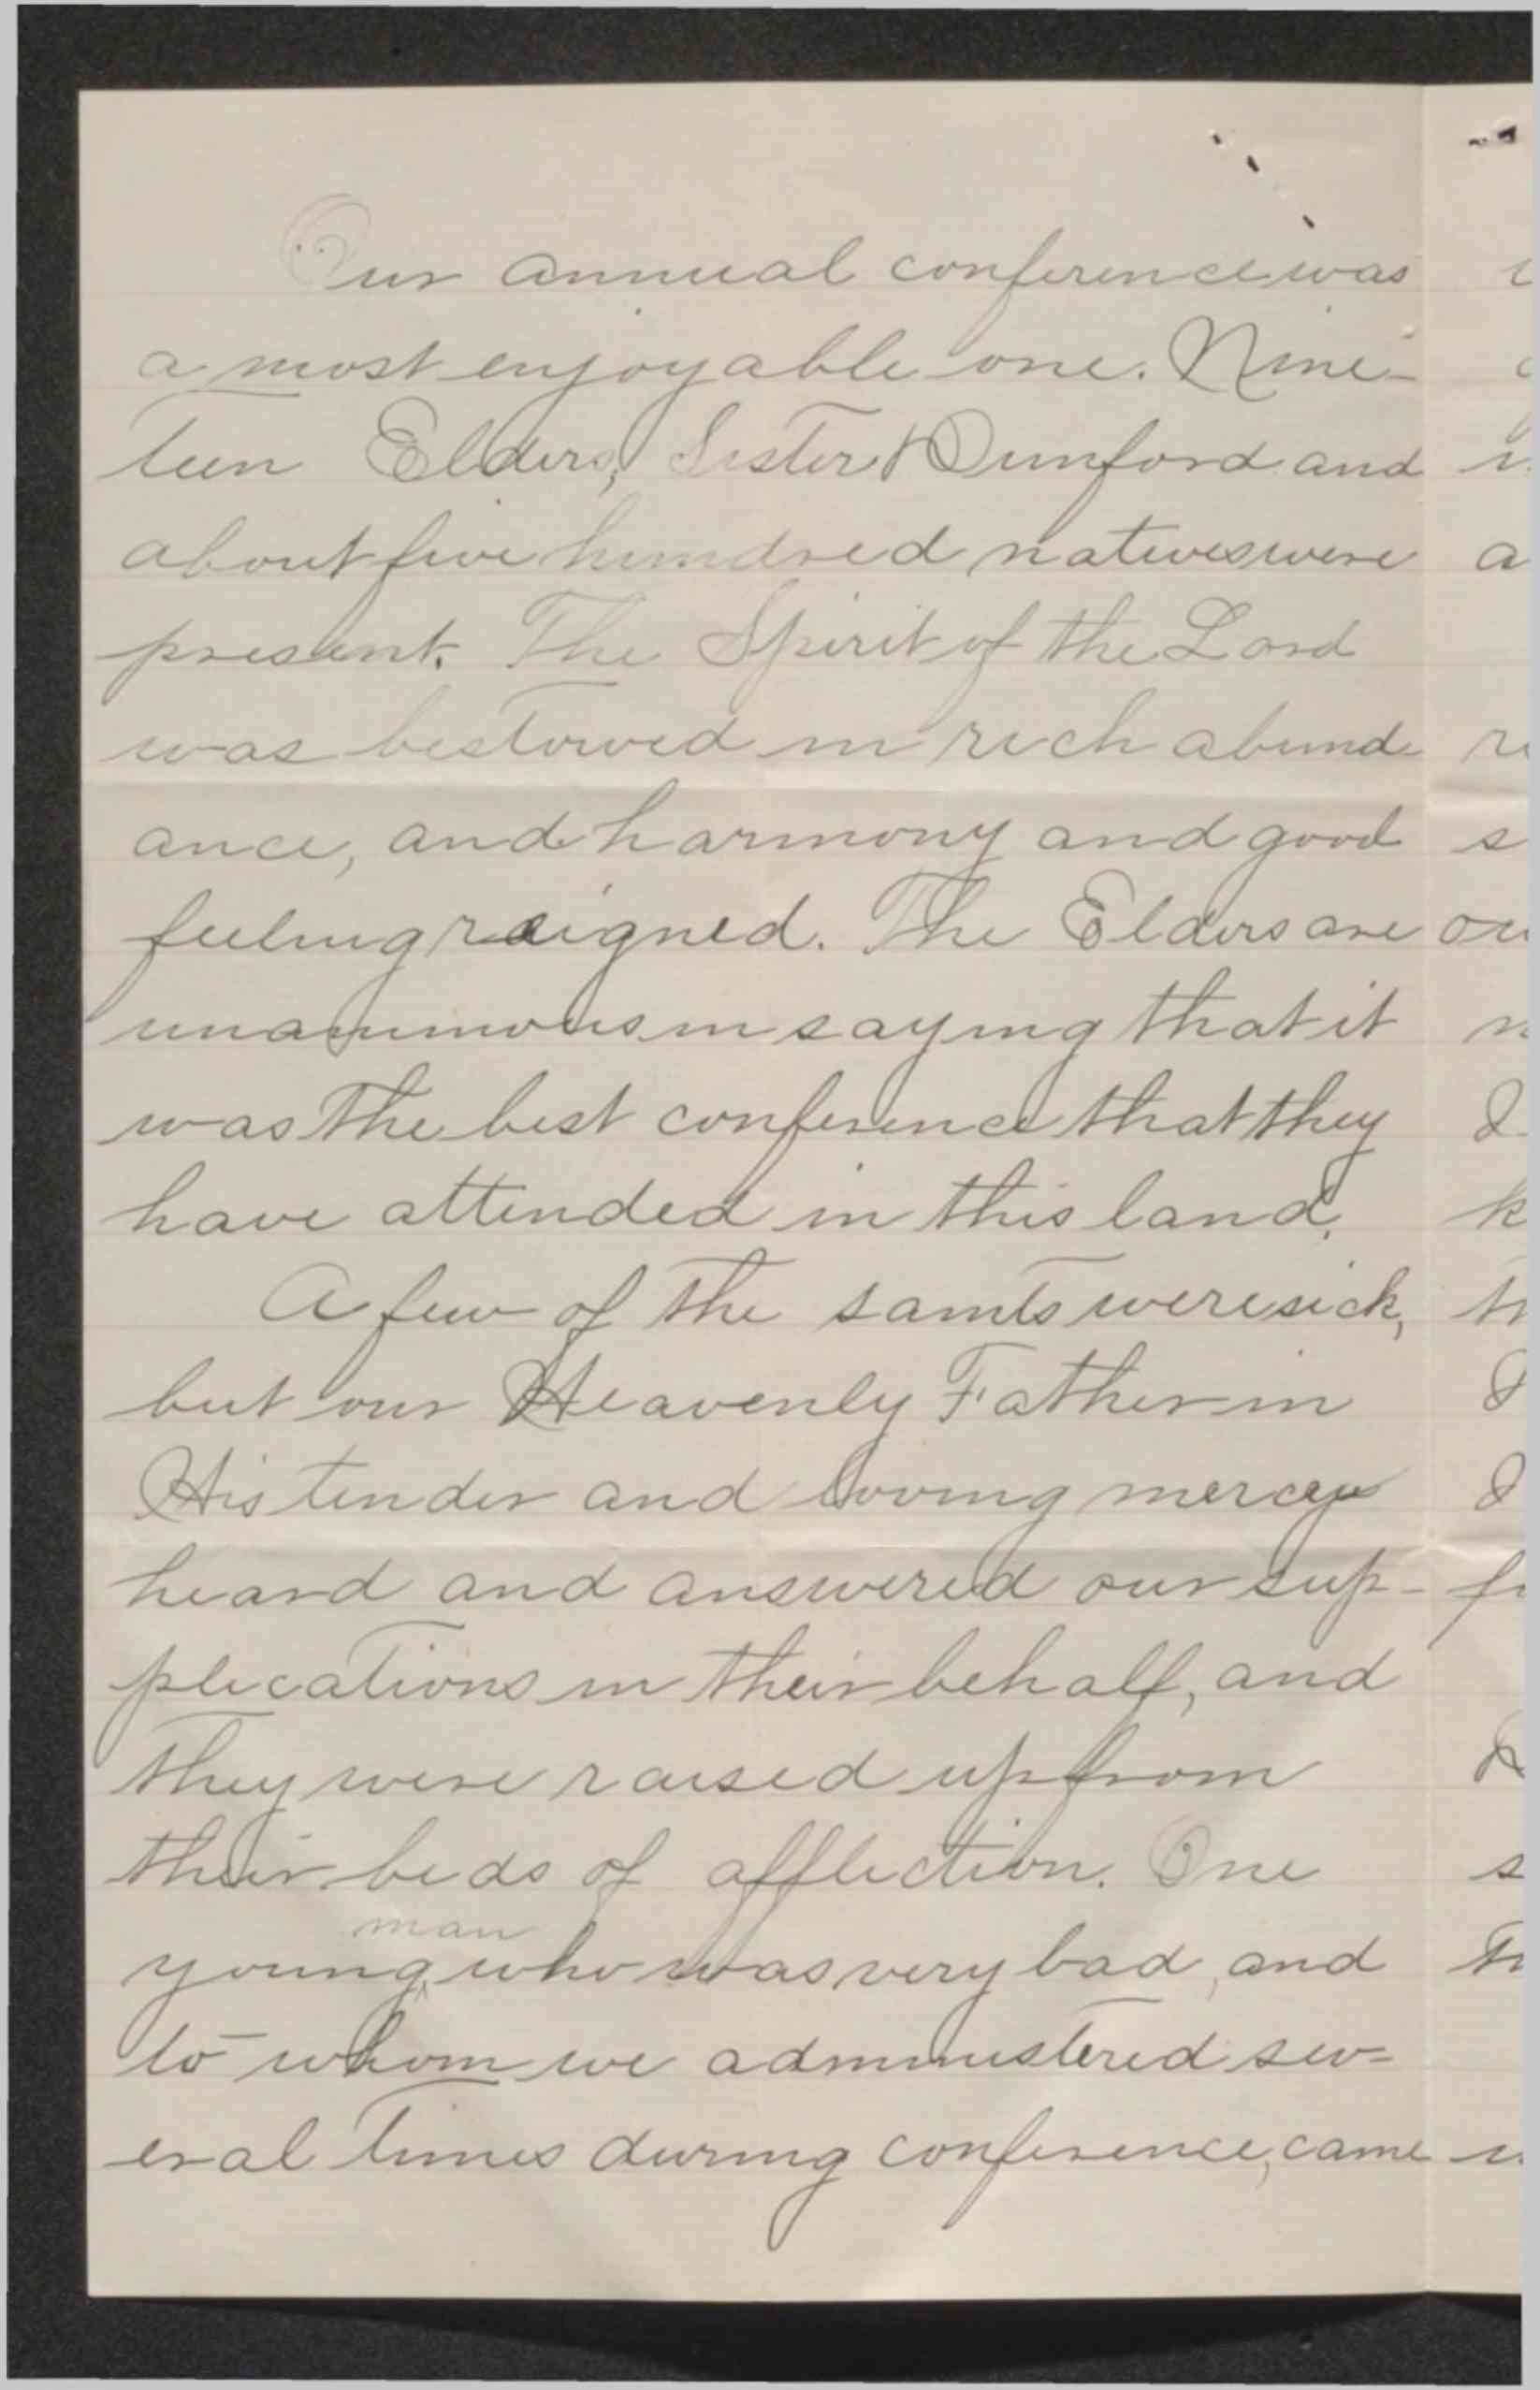 Our annual conference was
a most enjoyable one. Nine-
teen Elders, Sister Dunford and
about five hundred natives were
present. The Spirit of the Lord
was bestowed in rich abund-
ance, and harmony and good
feeling reigned. The Elders are
unanimous in saying that it
was the best conference that they
have attended in this land.
A few of the saints were sick,
but our Heavenly Father in
His tender and loving mercy
heard and answered our sup-
plications in their behalf, and
they were raised up from
their beds of affliction. One
man
young who was very bad, and
to whom we administered sev-
eral times during conference, came